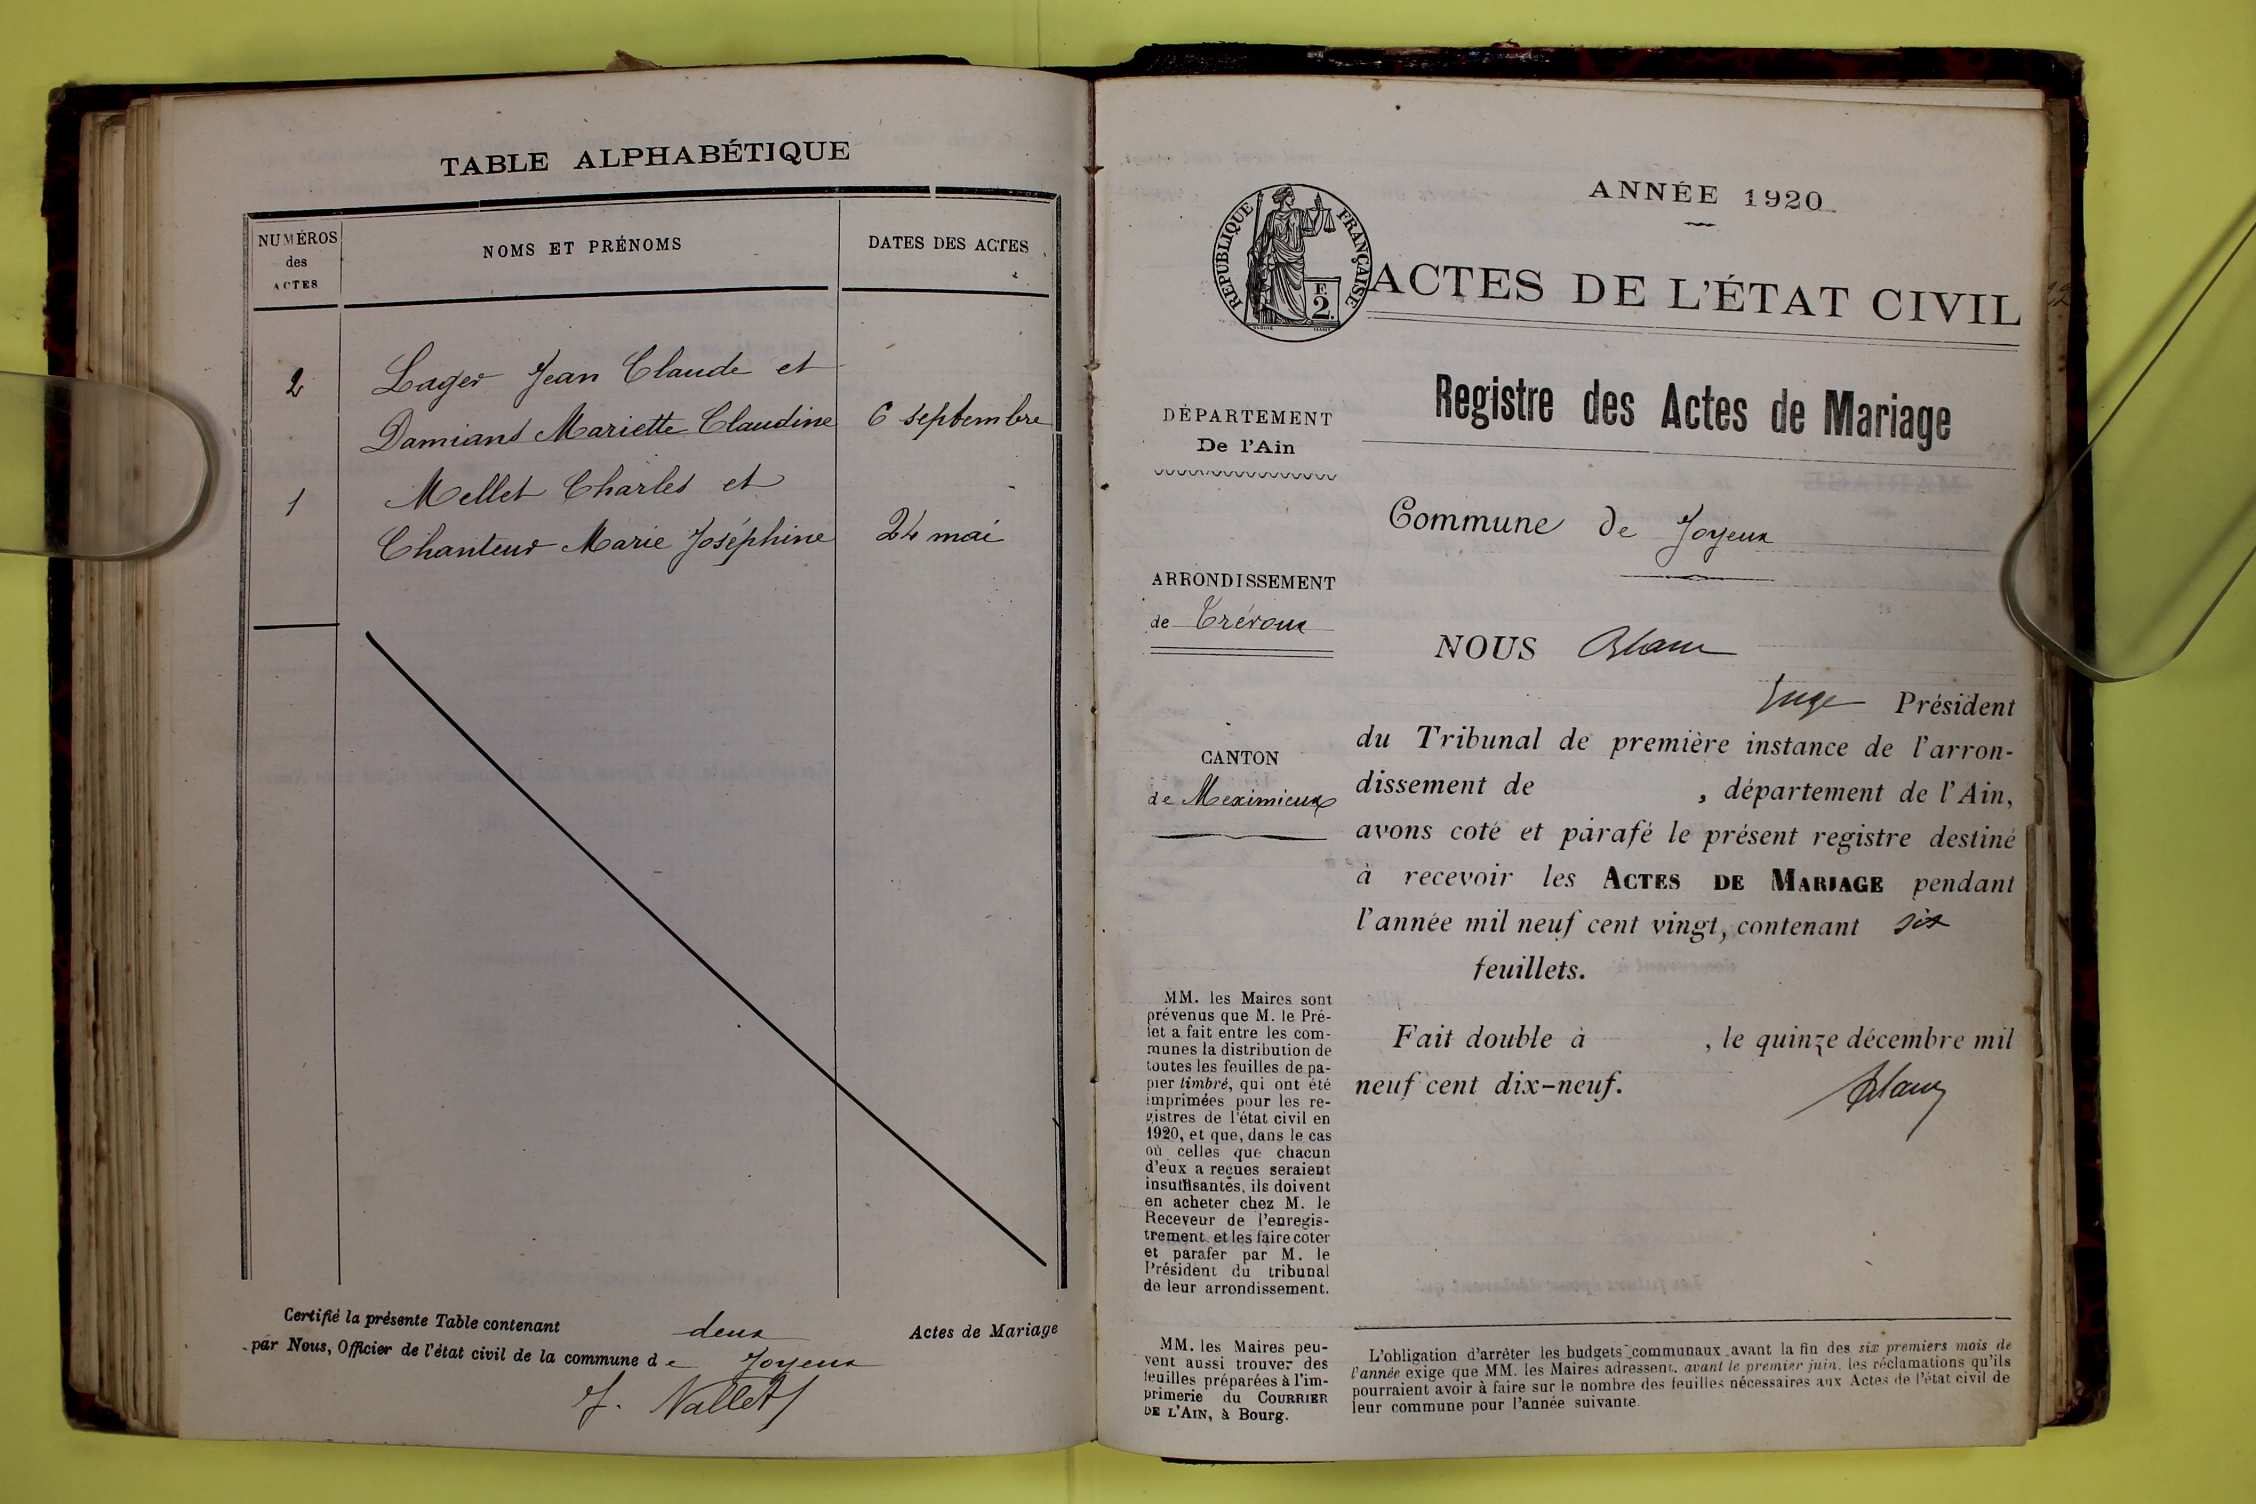 TABLE ALPHABÉTIQUE
NUMÉROS
des
ACTES
NOMS ET PRÉNOMS
DATES DES ACTES
2
Lager Jean Claude et
Damians Mariette Claudine
6 septembre
1
Mellet Charles et
Chanteur Marie Joséphine
24 mai
Certifié la présente Table contenant deux Actes de Mariage
par Nous, Officier de l'état civil de la commune de Joyeux
J. Nallet
ANNÉE 1920
RÉPUBLIQUE FRANÇAISE
F.
2.
ACTES DE L'ÉTAT CIVIL
Registre des Actes de Mariage
DÉPARTEMENT
De l'Ain
ARRONDISSEMENT
de Trévoux
CANTON
de Meximieux
MM. les Maires sont
prévenus que M. le Pré-
fet a fait entre les com-
munes la distribution de
toutes les feuilles de pa-
pier timbré, qui ont été
imprimées pour les re-
gistres de l'état civil en
1920, et que, dans le cas
où celles que chacun
d'eux a reçues seraient
insuffisantes, ils doivent
en acheter chez M. le
Receveur de l'enregis-
trement et les faire coter
et parafer par M. le
Président du tribunal
de leur arrondissement.
MM. les Maires peu-
vent aussi trouver des
feuilles préparées à l'im-
primerie du COURRIER
DE L'AIN, à Bourg.
Commune de Joyeux
NOUS Blanc
Juge Président
du Tribunal de première instance de l'arron-
dissement de , département de l'Ain,
avons coté et parafé le présent registre destiné
à recevoir les ACTES DE MARIAGE pendant
l'année mil neuf cent vingt, contenant six
feuillets.
Fait double à , le quinze décembre mil
neuf cent dix-neuf.
Blanc
L'obligation d'arrêter les budgets communaux avant la fin des six premiers mois de
l'année exige que MM. les Maires adressent, avant le premier juin, les réclamations qu'ils
pourraient avoir à faire sur le nombre des feuilles nécessaires aux Actes de l'état civil de
leur commune pour l'année suivante.